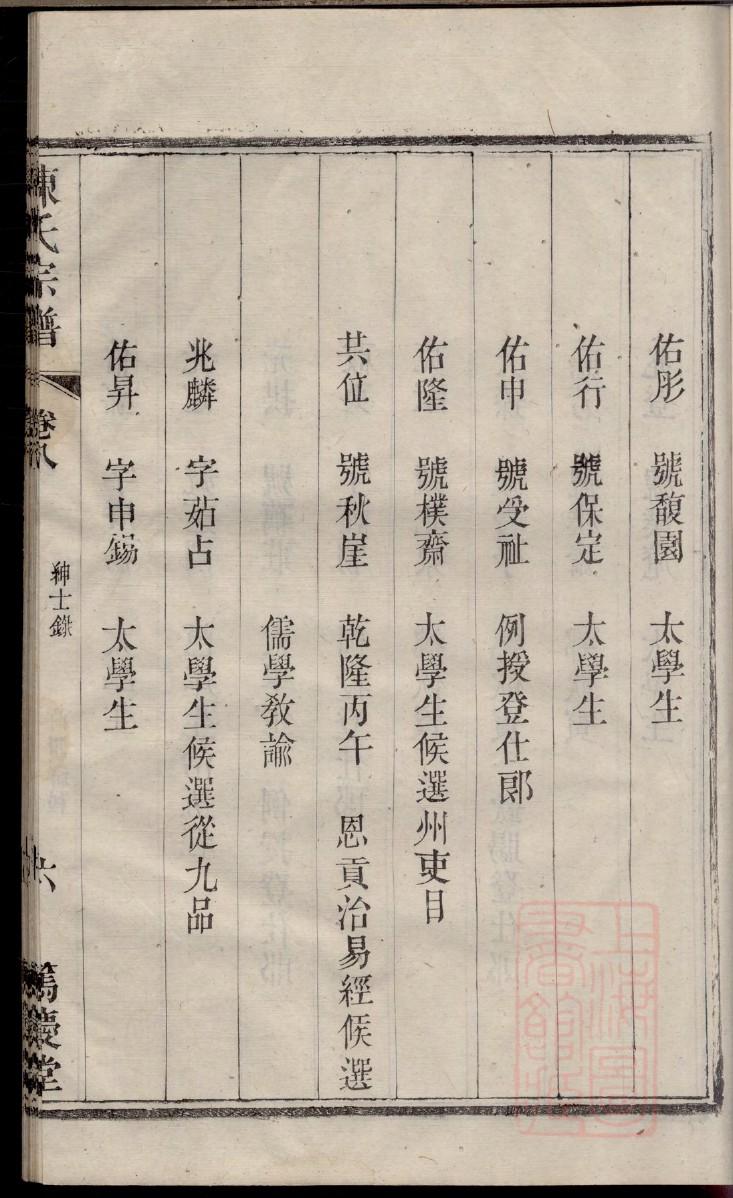 佑彤 號馥園 太學生
佑行 號保定 太學生
佑申 號受祉 例授登仕郎
佑隆 號樸齋 太學生候選州吏目
共位 號秋崖 乾隆丙午 恩貢治易經候選
儒學教諭
兆麟 字茹占 太學生候選從九品
佑昇 字申錫 太學生
陳氏宗譜 卷八 紳士錄 六 篤慶堂
上海圖書館藏